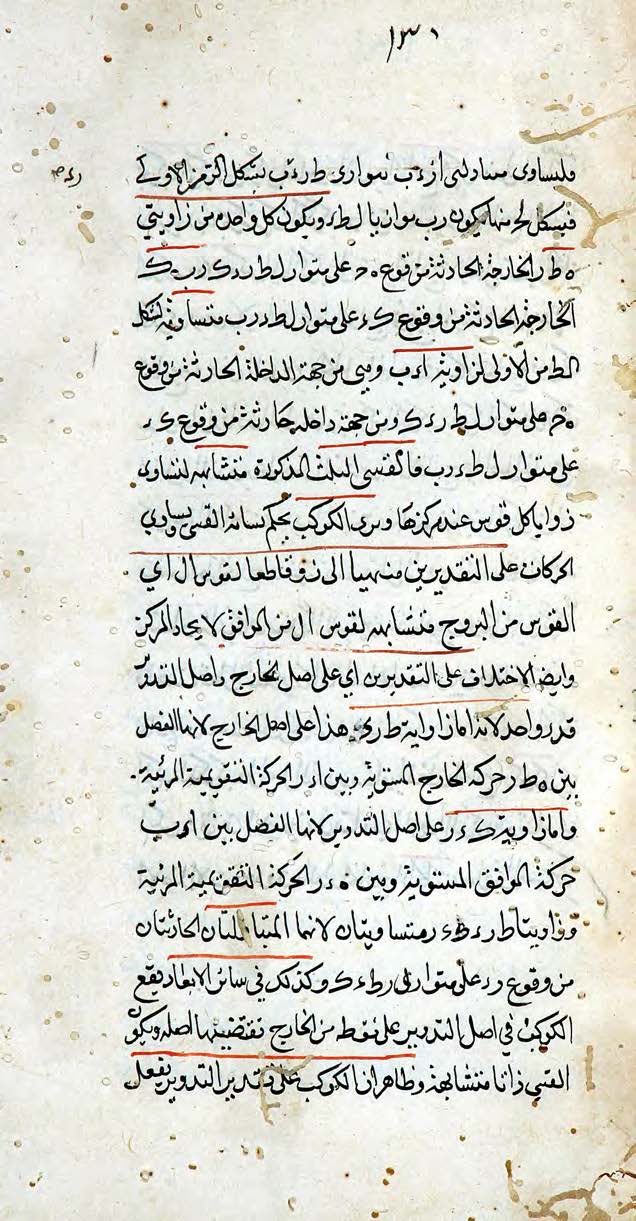 ١٣١
فلتساوى متبادلتى ا ر ء ب متوازى ط ر ء ب بشكل اكثر من الاولى
فبشكل لح منها يكون ر ب موازيا ل ط ء ويكون كل واحدة من زاويتى
ه ط ر الخارجة الحادثة من وقوع ه ح على متوازى ل ط ر ء ك ر ب ك
الخارجة الحادثة من وقوع ك ء على متوازى ل ط ء ر ب متساوية لشكل
الط من الاولى لزاوية ا ء ب وهى من جهة الداخلة الحادثة من وقوع
ه ح على متوازى ل ط ر ء ك ومن جهة داخلة حادثة من وقوع ك ء
على متوازى ل ط ء ر ب فالقسى الثلث المذكورة متشابهة لتساوى
زوايا كل قوس عند مركزها ويرى الكوكب بحكم تشابه القسى وتساوي
الحركات على التقديرين منتهيا الى ر وقاطعا لقوس ال اي
القوس من البروج متشابهه لقوس ال من الموافق لاتحاد المركز
وايضا الاختلاف على التقديرين اي على اصل الخارج واصل التدوير
قدر واحد لانه اما زاوية ط ر ء هذا على اصل الخارج لانها الفضل
بين ه ط ر حركة الخارج المستوية وبين ا ء ر الحركة التقويمية المرئية
واما زاوية ك ء ر على اصل التدوير لانها الفضل بين ا ء ب
حركة الموافق المستوية وبين ه ء ر الحركة التقويمية المرئية
وزاويتا ط ر ء ك ء ر متساويتان لانهما المتبادلتان الحادثتان
من وقوع ر ء على متوازى ل ر ط ء ك وكذلك في سائر الابعاد يقع
الكوكب في اصل التدوير على نقط من الخارج تقتضيها اصله ويكون
القسي ذاتا متشابهة وظاهر ان الكوكب على تقدير التدوير يفعل